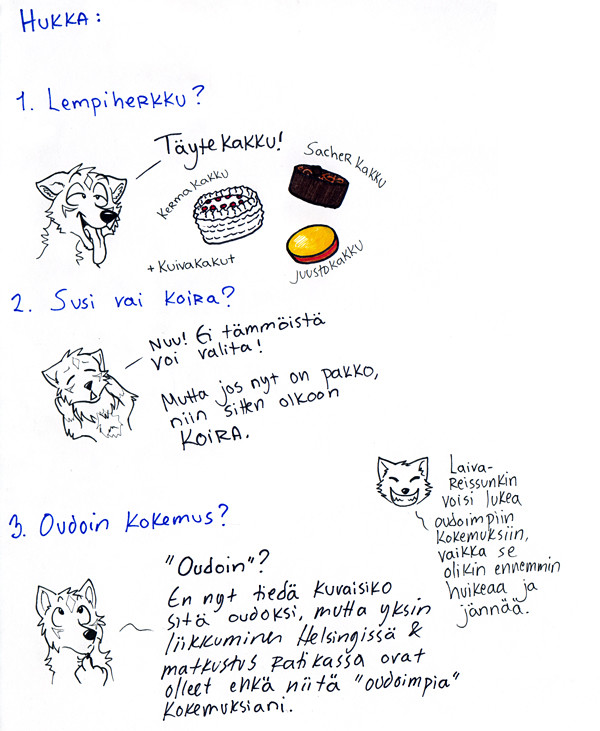 HUKKA:
1. Lempiherkku?
Täytekakku!
Kermakakku
Sacherkakku
+ Kuivakakut
Juustokakku
2. Susi vai koira?
Nuu! Ei tämmöistä
voi valita!
Mutta jos nyt on pakko,
niin sitten olkoon
KOIRA.
3. Oudoin kokemus?
"Oudoin"?
En nyt tiedä kuvaisiko
sitä oudoksi, mutta yksin
liikkuminen Helsingissä &
matkustus Ratikassa ovat
olleet ehkä niitä "oudoimpia"
kokemuksiani.
Laiva-
Reissunkin
voisi lukea
oudoimpiin
kokemuksiin,
vaikka se
olikin ennemmin
huikeaa ja
jännää.